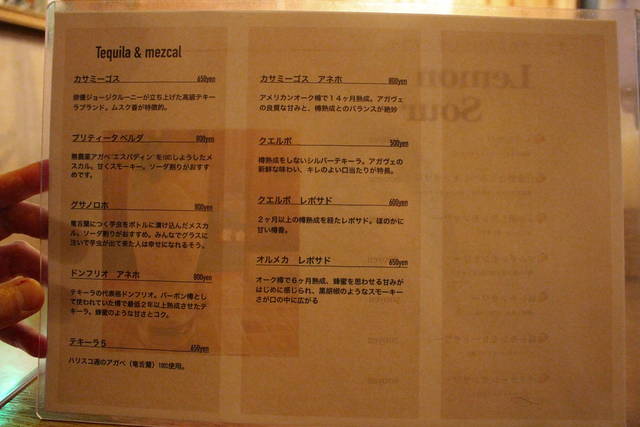 Tequila & mezcal
カサミーゴス 650yen
俳優ジョージクルーニーが立ち上げた高級テキー
ラブランド。ムスク香が特徴的。
プリティータ ベルダ 800yen
無農薬アガベ"エスパディン"を100%しようしたメ
スカル。甘くスモーキー。ソーダ割りがおすす
めです。
グサノロホ 800yen
竜舌蘭につく芋虫をボトルに漬け込んだメスカ
ル。ソーダ割りがおすすめ。みんなでグラスに
注いで芋虫が出て来た人は幸せになれるそう。
ドンフリオ アネホ 800yen
テキーラの代表格ドンフリオ。バーボン樽とし
て使われていた樽で最低2年以上熟成させたテ
キーラ。蜂蜜のような甘さとコク。
テキーラ5 650yen
ハリスコ週のアガベ（竜舌蘭）100%使用。
カサミーゴス アネホ 800yen
アメリカンオーク樽で14ヶ月熟成。アガヴェ
の良質な甘みと、樽熟成とのバランスが絶妙
クエルボ 500yen
樽熟成をしないシルバーテキーラ。アガヴェの
新鮮な味わい、キレのよい口当たりが特長。
クエルボ レポサド 600yen
2ヶ月以上の樽熟成を経たレポサド。ほのかに
甘い樽香。
オルメカ レポサド 650yen
オーク樽で6ヶ月熟成、蜂蜜を思わせる甘みが
はじめに感じられ、黒胡椒のようなスモーキー
さが口の中に広がる
Lemon
Sour